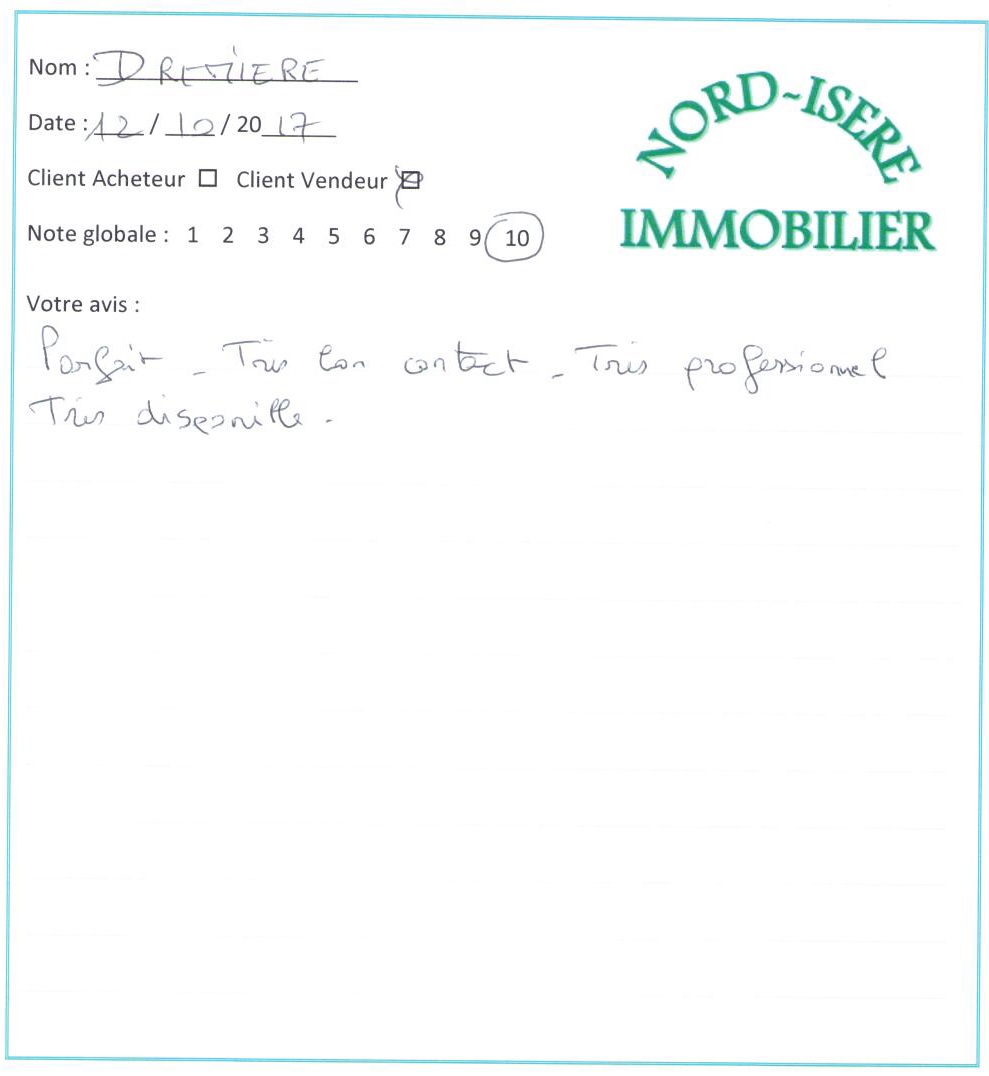 Nom :
Date : 12 / 10 / 20 17
Client Acheteur ☐ Client Vendeur ☒
Note globale : 1 2 3 4 5 6 7 8 9 10
NORD~ISERE
IMMOBILIER
Votre avis :
Parfait - Très bon contact - Très professionnel
Très disponible.